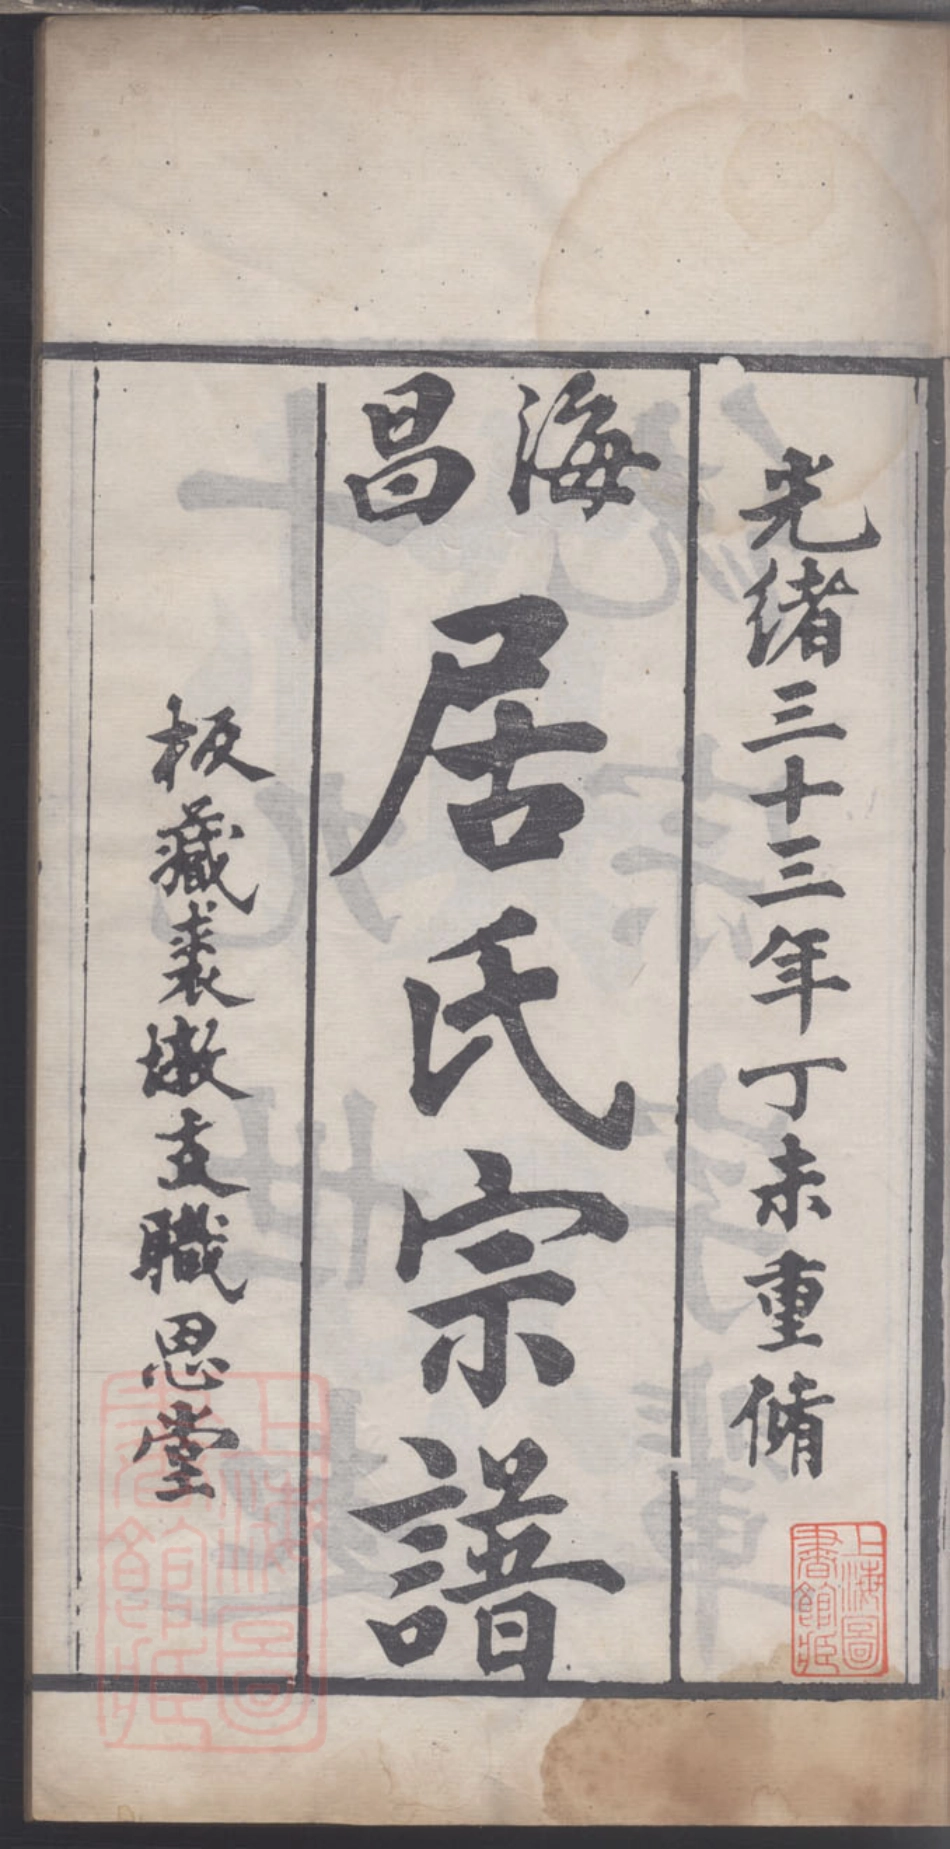 光緒三十三年丁未重脩
海昌
居氏宗譜
板藏裘墩支職思堂
上海圖書館藏
上海圖書館藏